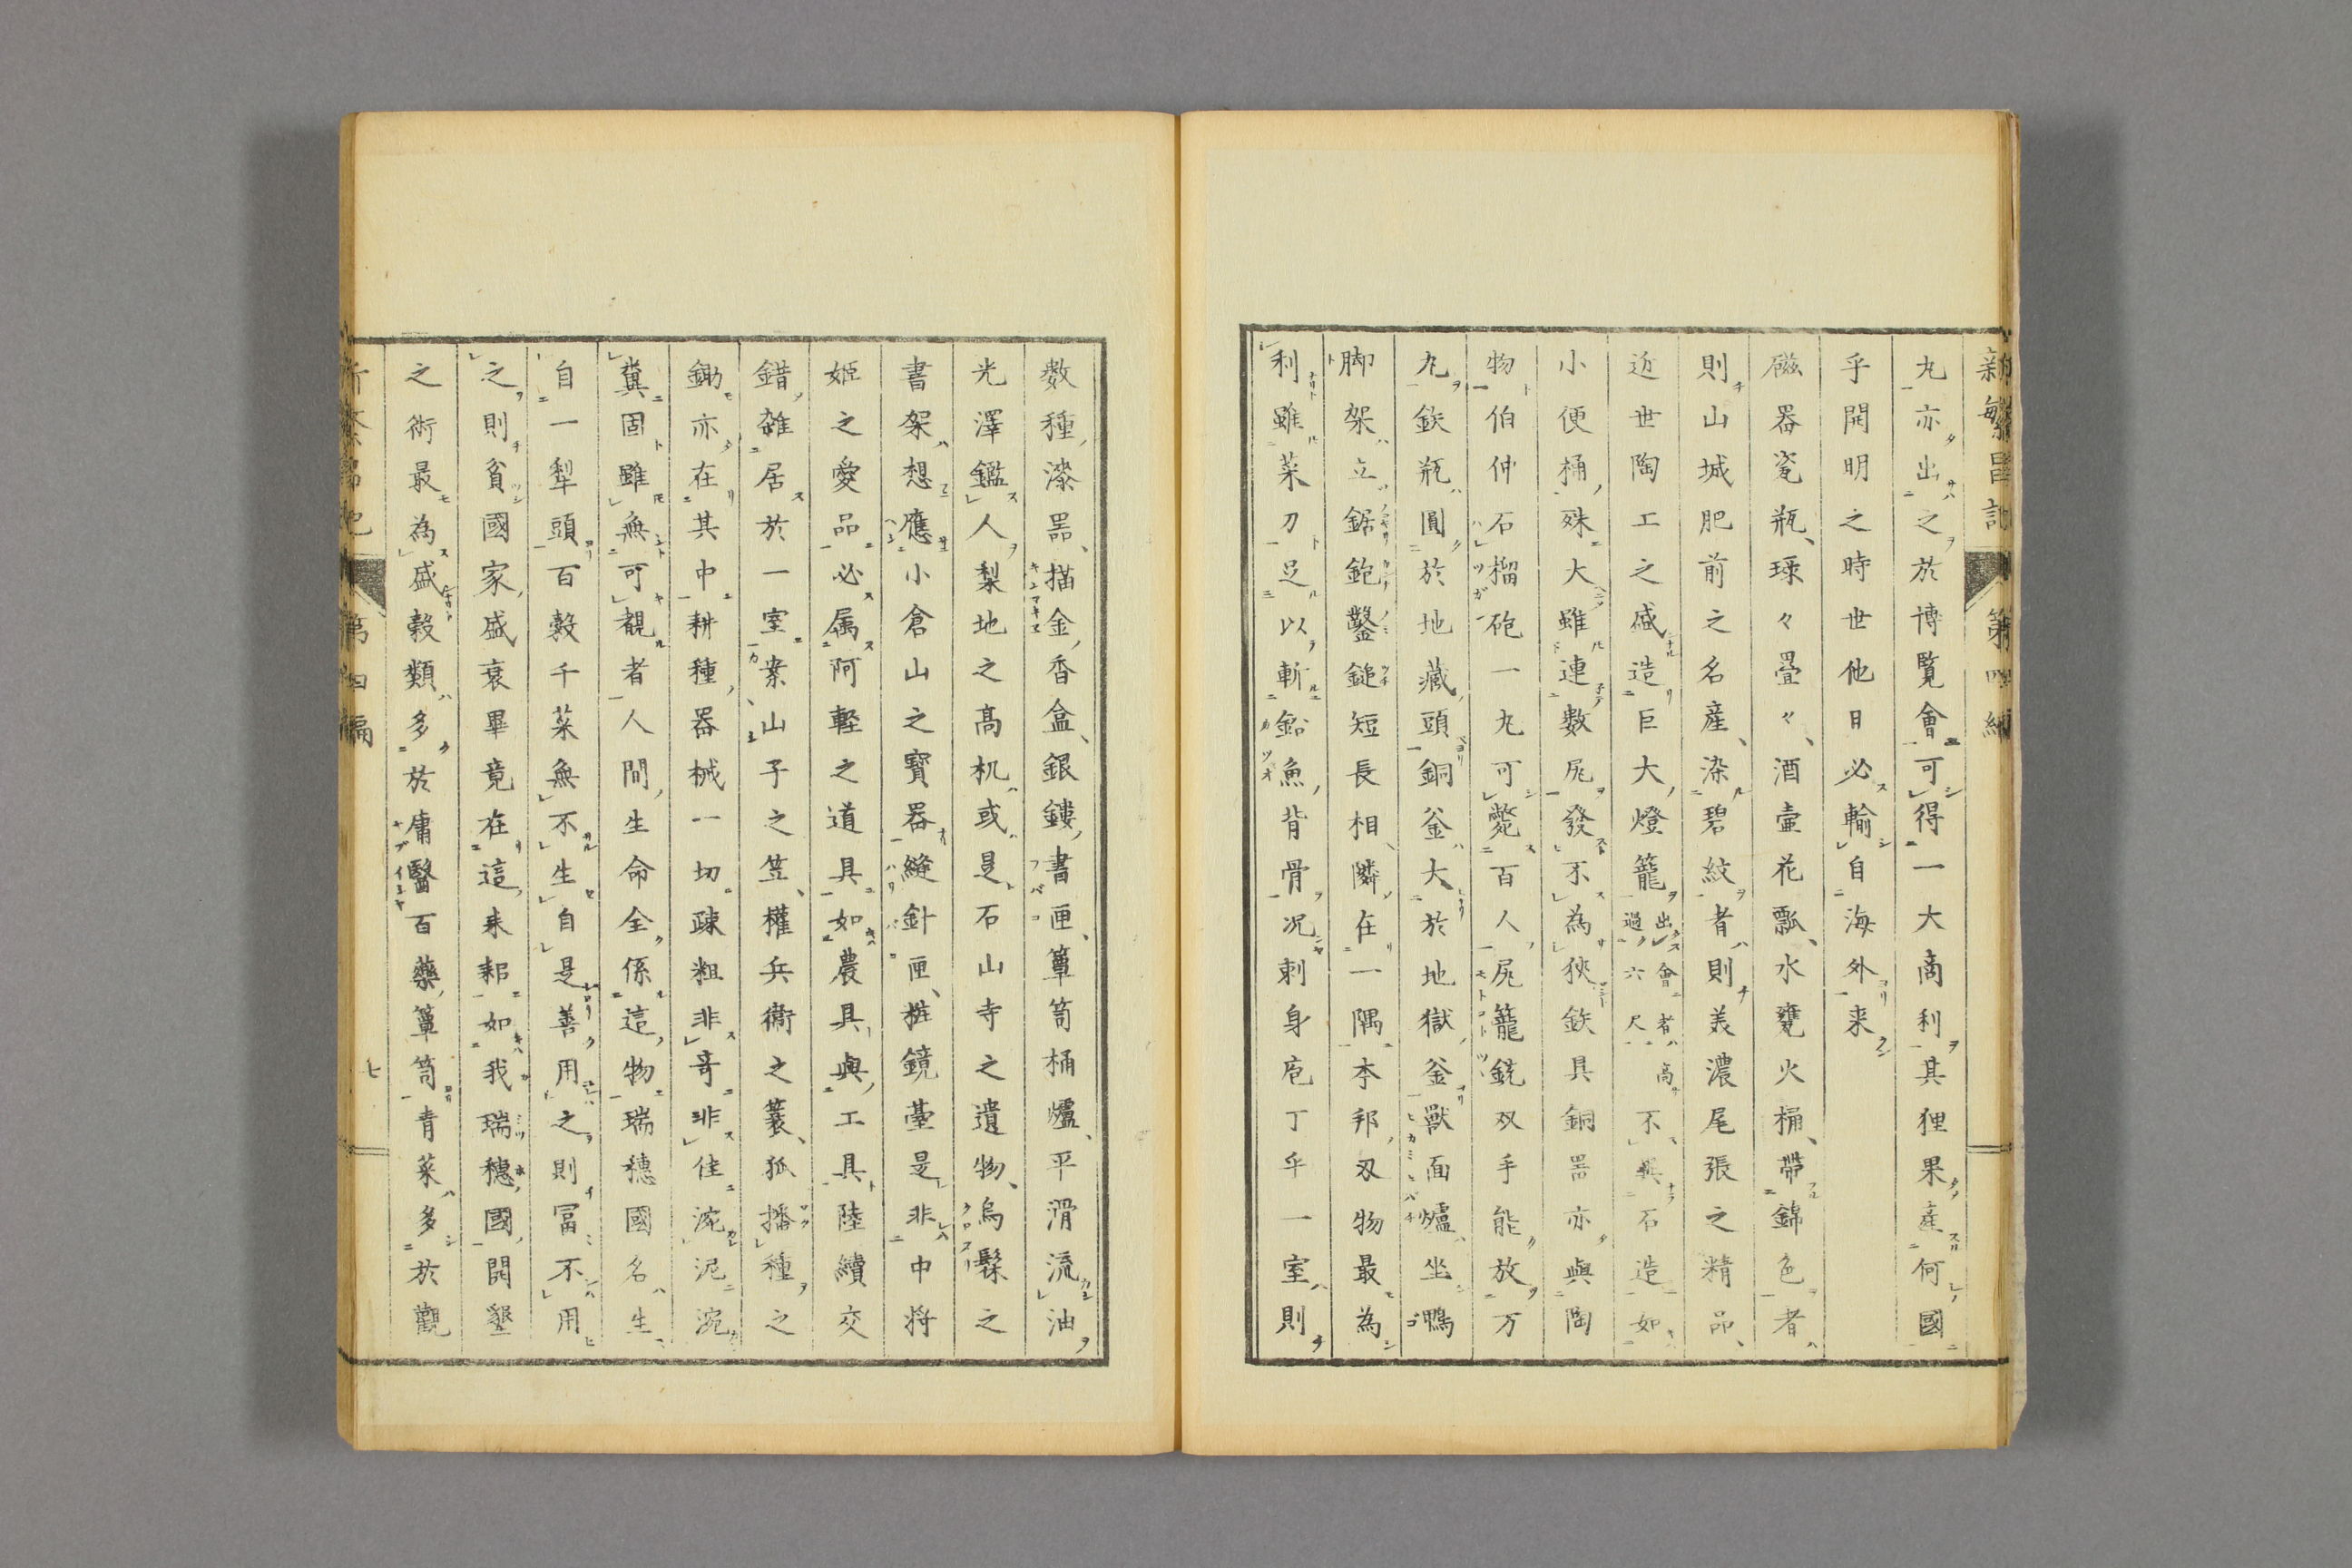 新繁昌記 第四編
丸亦出之於博覧會可得一大商利其狸果産何國
乎開明之時世他日必輸自海外来
磁器瓷瓶、球々疊々、酒壷花瓢、水甕火桶、帶錦色者
則山城肥前之名産、染碧紋者則美濃尾張之精品、
近世陶工之盛造巨大燈籠出會者高過六尺不異石造如
小便桶殊大雖連數尻發不為狹鉄具銅噐亦與陶
物伯仲石榴砲一丸可斃百人尻籠銃双手能放万
丸鉄瓶圓於地藏頭銅釜大於地獄釜獣面爐坐鴨
脚架立鋸鉋鑿鎚短長相隣在一隅本邦刃物最為
利雖菜刀足以斬鉛魚背骨况刺身庖丁乎一室則
數種漆噐、描金香盒、銀鏤書匣、簞笥桶爐、平滑流油
光澤鑑人梨地之髙机或是石山寺之遺物、烏髹之
書架想應小倉山之寳器縫針匣、粧鏡臺是非中将
姫之愛品必属阿軽之道具如農具與工具陸續交
錯雑居於一室案山子之笠、權兵衛之蓑、狐播種之
鋤亦在其中耕種器械一切疎粗非奇非佳涴泥涴
糞固雖無可觀者人間生命全係這物瑞穂國名生
自一犁頭百穀千菜無不生自是善用之則冨不用
之則貧國家盛衰畢竟在這耒耜如我瑞穗國開墾
之術最為盛穀類多於庸醫百藥簞笥青菜多於觀
第四編 七